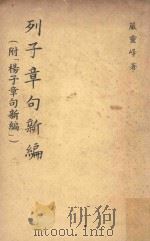 嚴靈峰 著
列子章句新編
(附「楊子章句新編」)